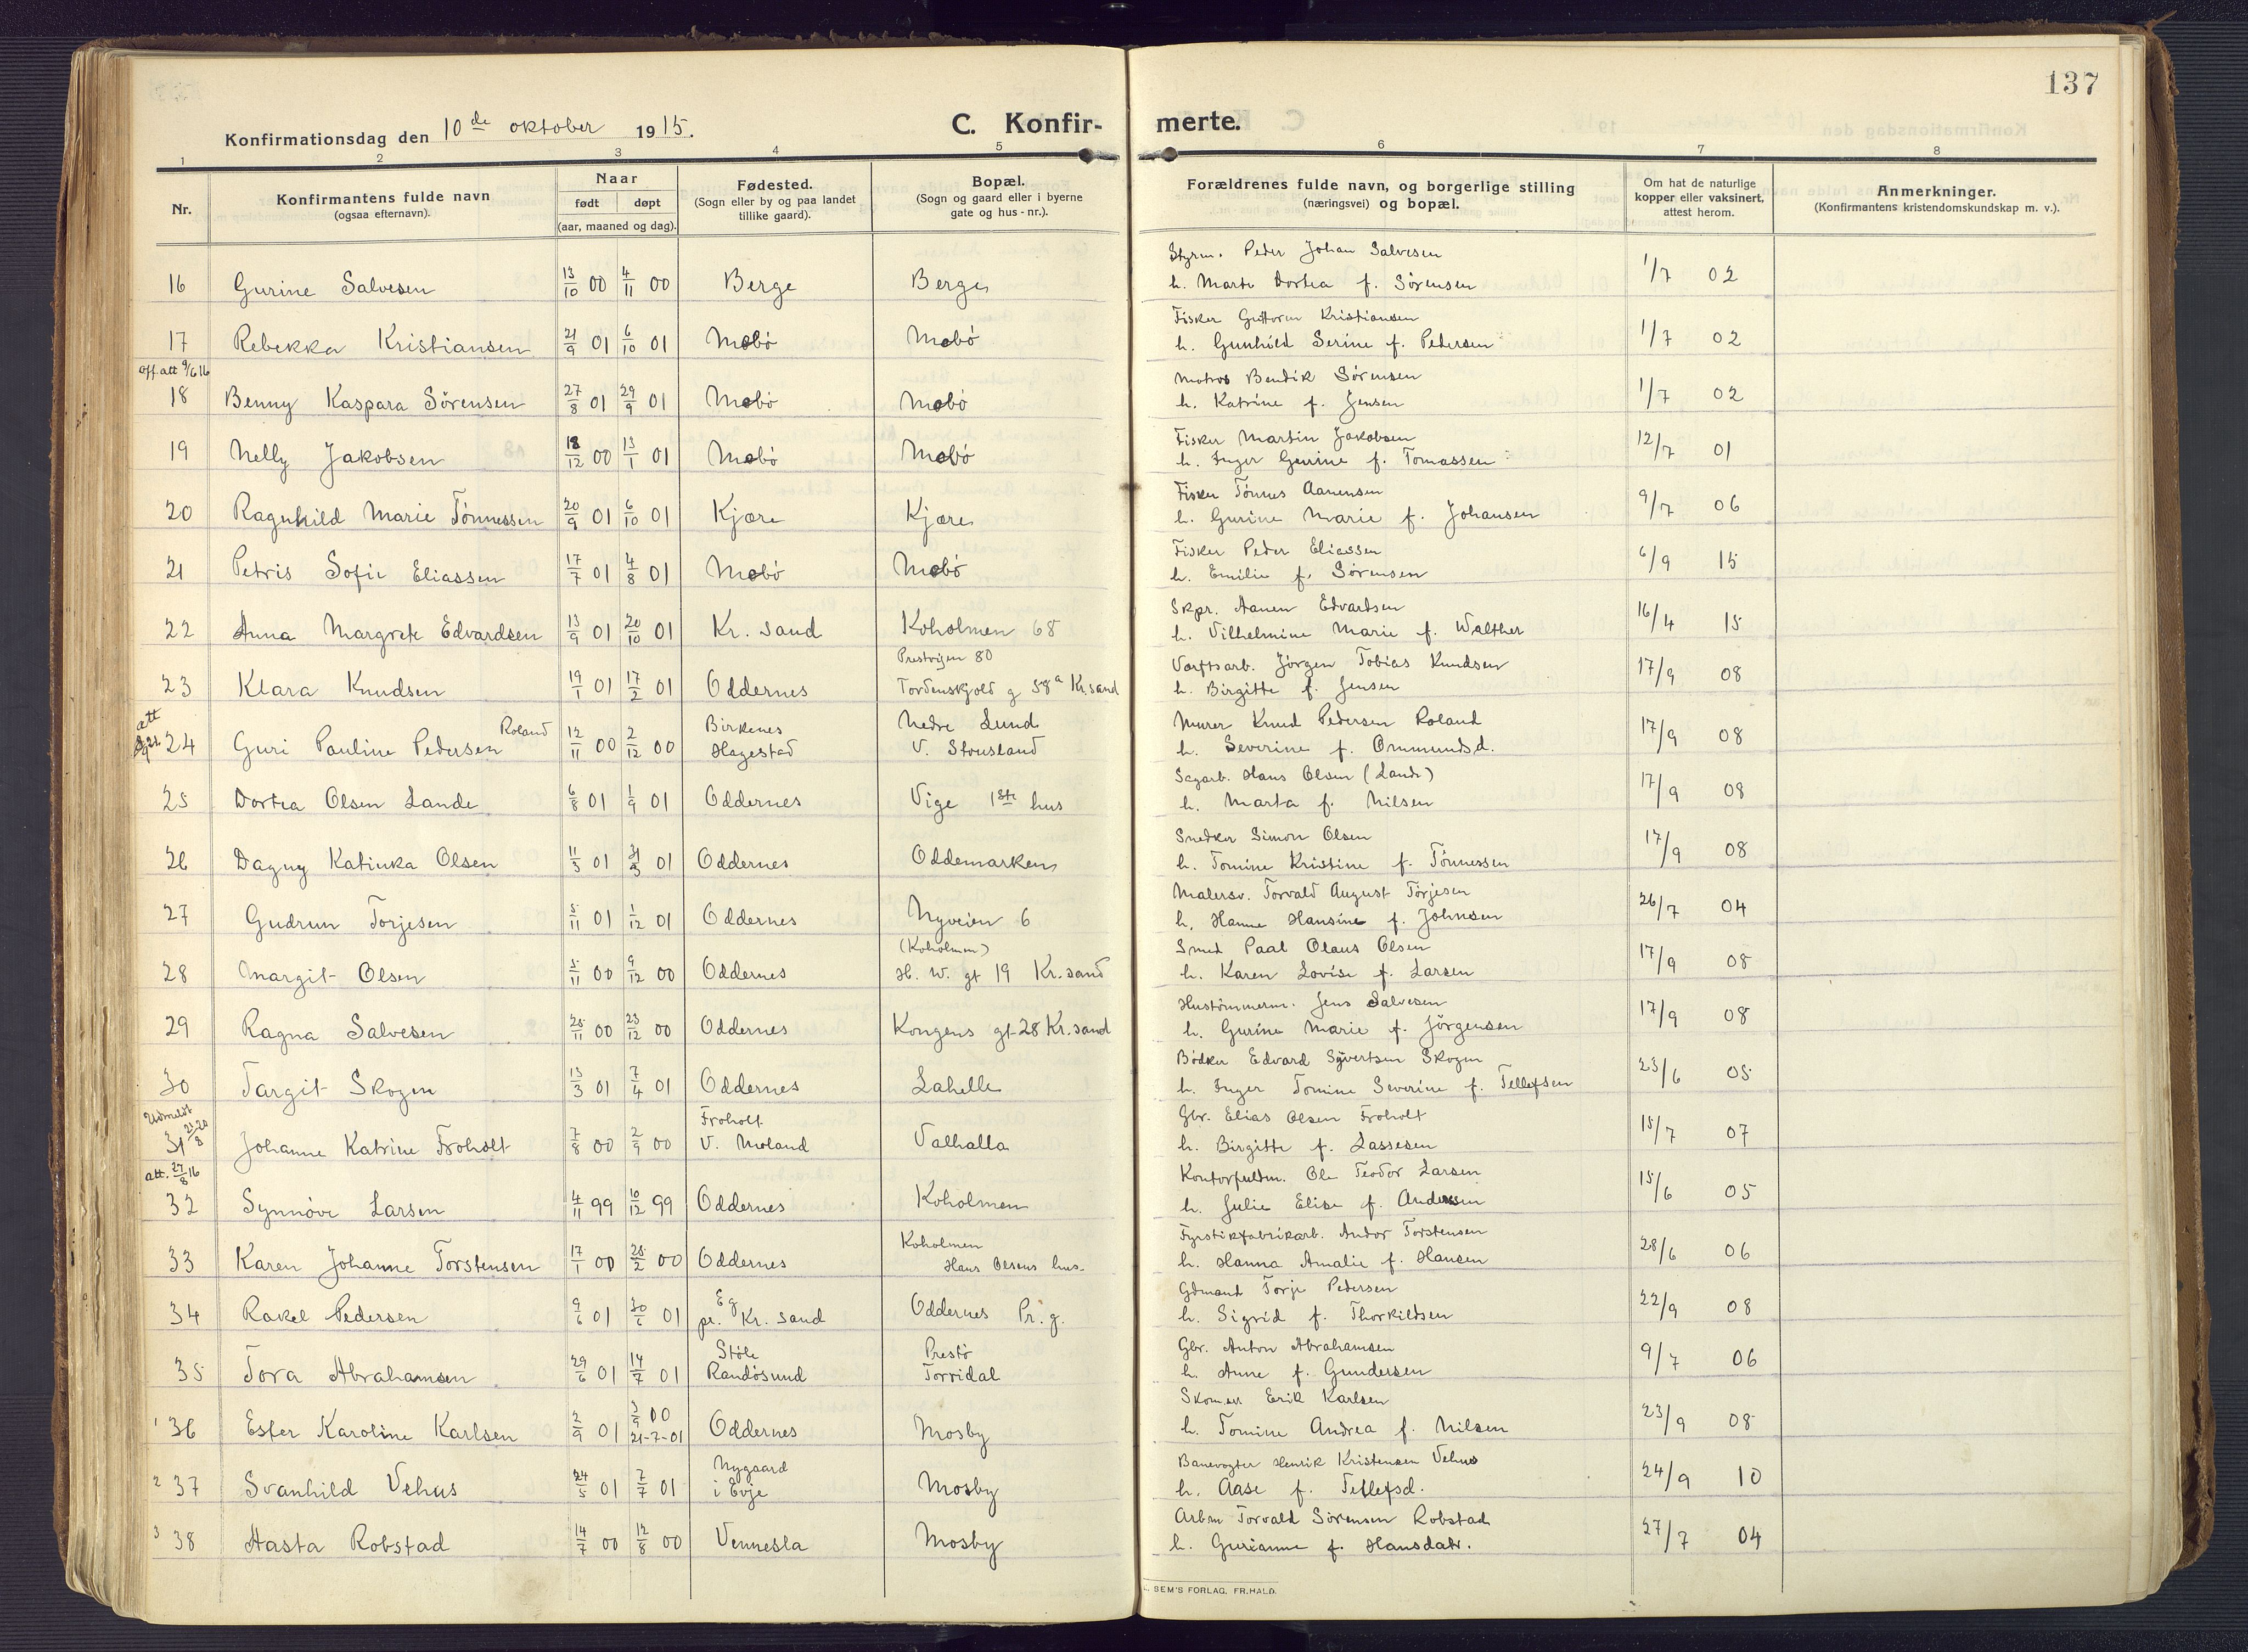 137
Konfirmationsdag den 10de oktober 1915.
C. Konfir-
merte.
1 2 3 4 5 6 7 8
Nr.
Konfirmantens fulde navn
(ogsaa efternavn).
Naar
født døpt
(aar, maaned og dag).
Fødested.
(Sogn eller by og paa landet
tillike gaard).
Bopæl.
(Sogn og gaard eller i byerne
gate og hus-nr.).
Forældrenes fulde navn, og borgerlige stilling
(næringsvei) og bopæl.
Om hat de naturlige
kopper eller vaksinert,
attest herom.
Anmerkninger.
(Konfirmantens kristendomskundskap m. v.).
Styrm. Peder Johan Salvesen
16 Gurine Salvesen 13/10 00 4/11 00 Berge Berge h. Marte Dortea f. Sørensen 1/7 02
Fisker Guttorm Kristiansen
17 Rebekka Kristiansen 21/9 01 6/10 01 Mebø Mebø h. Gunhild Serine f. Pedersen 1/7 02
off. att 9/6 16
Matros Bendik Sørensen
18 Benny Kaspara Sørensen 27/8 01 29/9 01 Mebø Mebø h. Katrine f. Jensen 1/7 02
Fisker Martin Jakobsen
19 Nelly Jakobsen 18/12 00 13/1 01 Mebø Mebø h. Inger Gurine f. Tomassen 12/7 01
Fisker Tønnes Aanensen
20 Ragnhild Marie Tønnessen 20/9 01 6/10 01 Kjære Kjære h. Gurine Marie f. Johansen 9/7 06
Fisker Peder Eliassen
21 Petris Sofie Eliassen 17/7 01 4/8 01 Mebø Mebø h. Emilie f. Sørensen 6/9 15
Skpr. Aanen Edvardsen
22 Anna Margrete Edvardsen 13/9 01 20/10 01 Kr. sand Koholmen 68 h. Vilhelmine Marie f. Walther 16/4 15
Prestvejen 80 Værftsarb. Jørgen Tobias Knudsen
23 Klara Knudsen 19/1 01 17/2 01 Oddernes Tordenskjold g 58a Kr. sand h. Birgitte f. Jensen 17/9 08
att
Roland Birkenes Nedre Lund Murer Knud Pedersen Roland
24 Guri Pauline Pedersen 12/11 00 2/12 00 Hagestad V. Strusland h. Severine f. Ommundsd. 17/9 08
Sagarb. Hans Olsen (Lande)
25 Dortea Olsen Lande 6/8 01 1/9 01 Oddernes Vige 1ste hus h. Marta f. Nilsen 17/9 08
Snedker Simon Olsen
26 Dagny Katinka Olsen 11/3 01 31/3 01 Oddernes Oddemarken h. Tomine Kristine f. Tønnessen 17/9 08
Malersv. Torvald August Torjesen
27 Gudrun Torjesen 5/11 01 1/12 01 Oddernes Nyveien 6 h. Hanne Hansine f. Johnsen 26/7 04
(Koholmen) Smed Paal Olaus Olsen
28 Margit Olsen 5/11 00 9/12 00 Oddernes H. W. gt 19 Kr. sand h. Karen Lovise f. Larsen 17/9 08
Hustømmerm. Jens Salvesen
29 Ragna Salvesen 25/11 00 23/12 00 Oddernes Kongens gt 28 Kr. sand h. Gurine Marie f. Jørgensen 17/9 08
Bødker Edvard Syvertsen Skogen
30 Targit Skogen 13/3 01 7/4 01 Oddernes Lahelle h. Inger Tomine Severine f. Tellefsen 23/6 05
Utmeldt 21/8 20
Froholt Gbr. Elias Olsen Froholt
31 Johanne Katrine Froholt 7/8 00 2/9 00 V. Moland Valhalla h. Birgitte f. Lassesen 15/7 07
att. 27/8 16
Kontorfuldm. Ole Teodor Larsen
32 Synnøve Larsen 4/11 99 10/12 99 Oddernes Koholmen h. Julie Elise f. Andersen 15/6 05
Koholmen Fyrstikfabrikarb. Andor Torstensen
33 Karen Johanne Torstensen 17/1 00 25/2 00 Oddernes Hans Olsens hus. h. Hanna Amalie f. Hansen 28/6 06
Eg Gdmand Torje Pedersen
34 Rakel Pedersen 9/6 01 30/6 01 pr. Kr. sand Oddernes Pr. g. h. Sigrid f. Thorkildsen 22/9 08
Støle Prestø Gbr. Anton Abrahamsen
35 Tora Abrahamsen 29/6 01 14/7 01 Randøsund Torridal h. Anne f. Gundersen 9/7 06
3/9 00 Skom.sv Erik Karlsen
1 36 Ester Karoline Karlsen 2/9 01 21-7-01 Oddernes Mosby h. Tomine Andrea f. Nilsen 23/9 08
Nygaard Banevogter Henrik Kristensen Vehus
2 37 Svanhild Vehus 24/5 01 7/7 01 i Evje Mosby h. Aase f. Tellefsd. 24/9 10
Arbm Torvald Sørensen Robstad
3 38 Aasta Robstad 14/7 00 12/8 00 Vennesla Mosby h. Gurianne f. Hansdatr. 27/7 04
SEM'S FORLAG, FR.HALD.